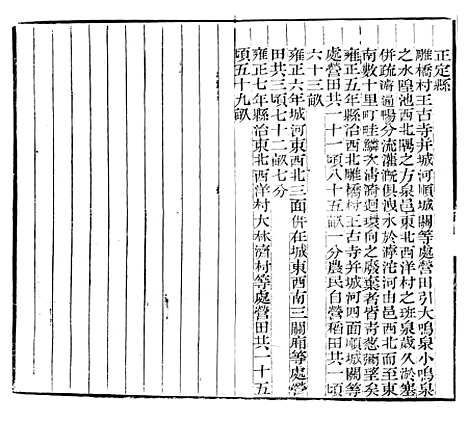 正定縣
雕橋村王古寺并城河順城關等處營田引大鳴泉小鳴泉
之水隍池西北隅之方泉邑東北西洋村之班泉歲久淤塞
併疏濬通暢分流灌漑俱洩水於滹沱河由邑西北而至東
南數十里町畦鱗次淸流迴環向之廢葉者皆靑葱彌望矣
雍正五年縣治西北雕橋村王古寺并城河四面順城關等
處營田共一十一頃八十五畝一分農民自營稻田共一頃
六十三畝
雍正六年城河東西北三面併在城東西南三關廂等處營
田共三頃七十二畝七分
雍正七年縣治東北西洋村大林濟村等處營田共一十五
頃五十九畝